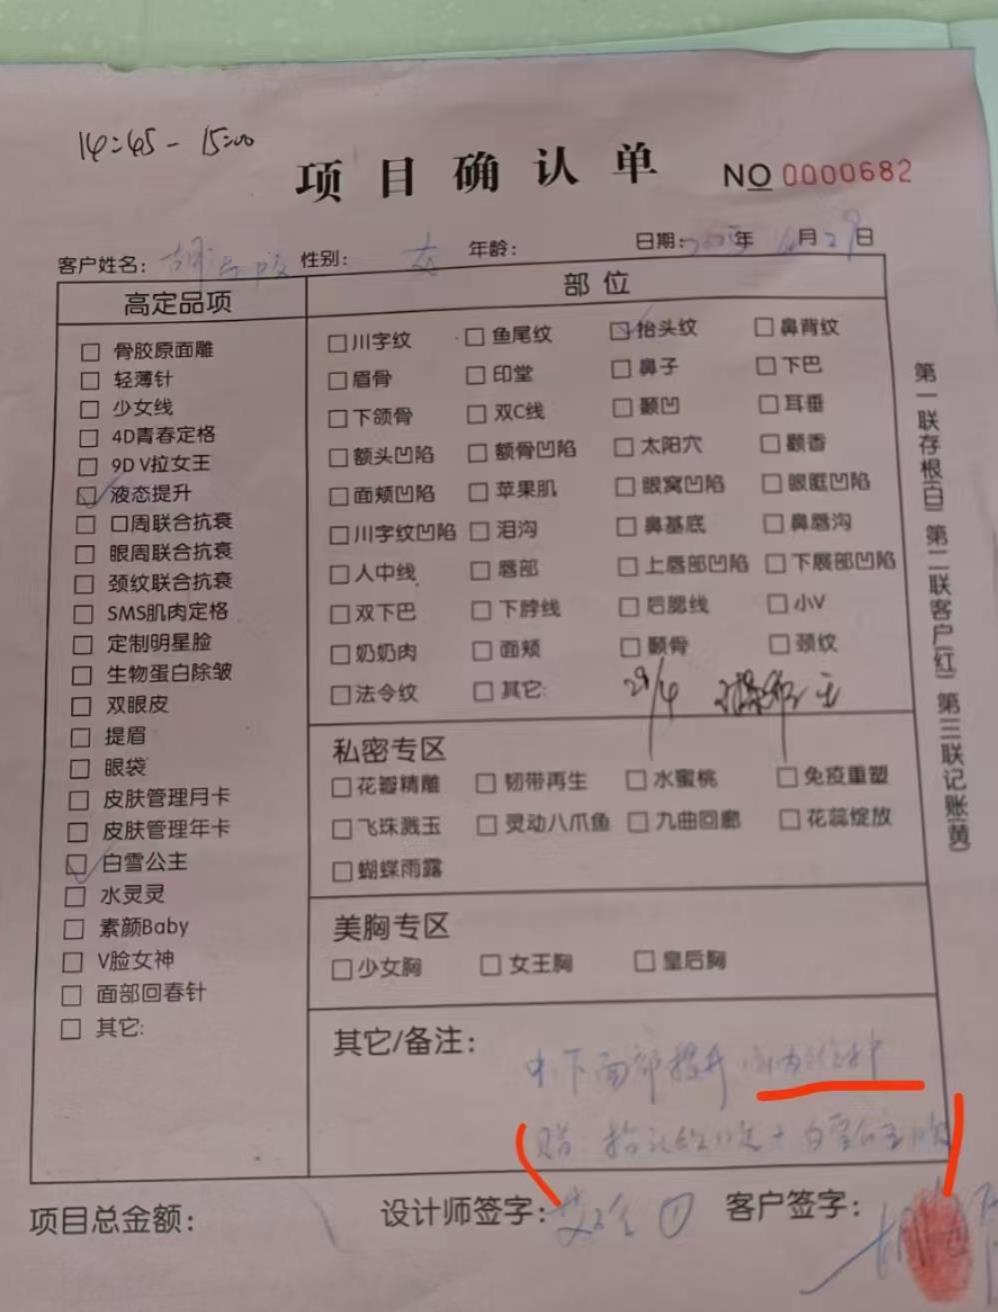 14:45 - 15:00
项目确认单 NO 0000682
客户姓名: 胡 性别: 女 年龄: 日期: 2025年 4月29日
高定品项
□ 骨胶原面雕
□ 轻薄针
□ 少女线
□ 4D青春定格
□ 9D V拉女王
□ 液态提升
□ 口周联合抗衰
□ 眼周联合抗衰
□ 颈纹联合抗衰
□ SMS肌肉定格
□ 定制明星脸
□ 生物蛋白除皱
□ 双眼皮
□ 提眉
□ 眼袋
□ 皮肤管理月卡
□ 皮肤管理年卡
□ 白雪公主
□ 水灵灵
□ 素颜Baby
□ V脸女神
□ 面部回春针
□ 其它:
部位
□川字纹 □鱼尾纹 □抬头纹 □鼻背纹
□眉骨 □印堂 □鼻子 □下巴
□下颌骨 □双C线 □颞凹 □耳垂
□额头凹陷 □额骨凹陷 □太阳穴 □颧香
□面颊凹陷 □苹果肌 □眼窝凹陷 □眼眶凹陷
□川字纹凹陷 □泪沟 □鼻基底 □鼻唇沟
□人中线 □唇部 □上唇部凹陷 □下展部凹陷
□双下巴 □下脖线 □后腮线 □小V
□奶奶肉 □面颊 □颧骨 □颈纹
□法令纹 □其它: 29/4
私密专区
□花瓣精雕 □韧带再生 □水蜜桃 □免疫重塑
□飞珠溅玉 □灵动八爪鱼 □九曲回廊 □花蕊绽放
□蝴蝶雨露
美胸专区
□少女胸 □女王胸 □皇后胸
其它/备注:
中下面部提升
赠: 抬头纹1次+白雪公主1次
项目总金额: 设计师签字: 客户签字:
第一联存根(白) 第二联客户(红) 第三联记账(黄)